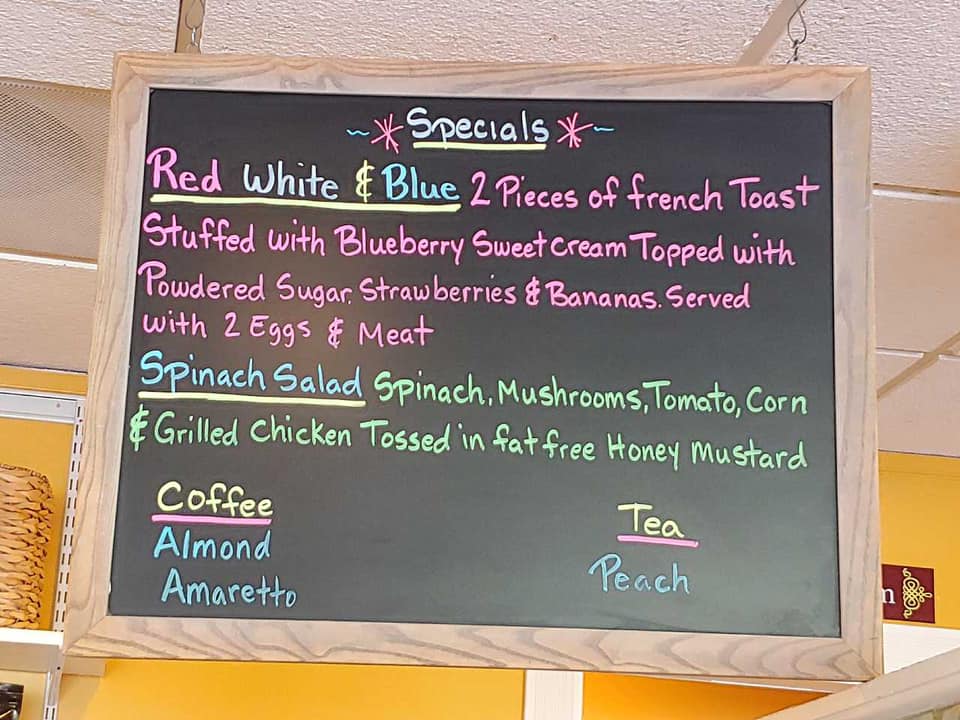 ~* Specials *~
Red White & Blue 2 Pieces of french Toast
Stuffed with Blueberry Sweet cream Topped with
Powdered Sugar, Strawberries & Bananas. Served
with 2 Eggs & Meat
Spinach Salad Spinach, Mushrooms, Tomato, Corn
& Grilled Chicken Tossed in fat free Honey Mustard
Coffee
Almond
Amaretto
Tea
Peach